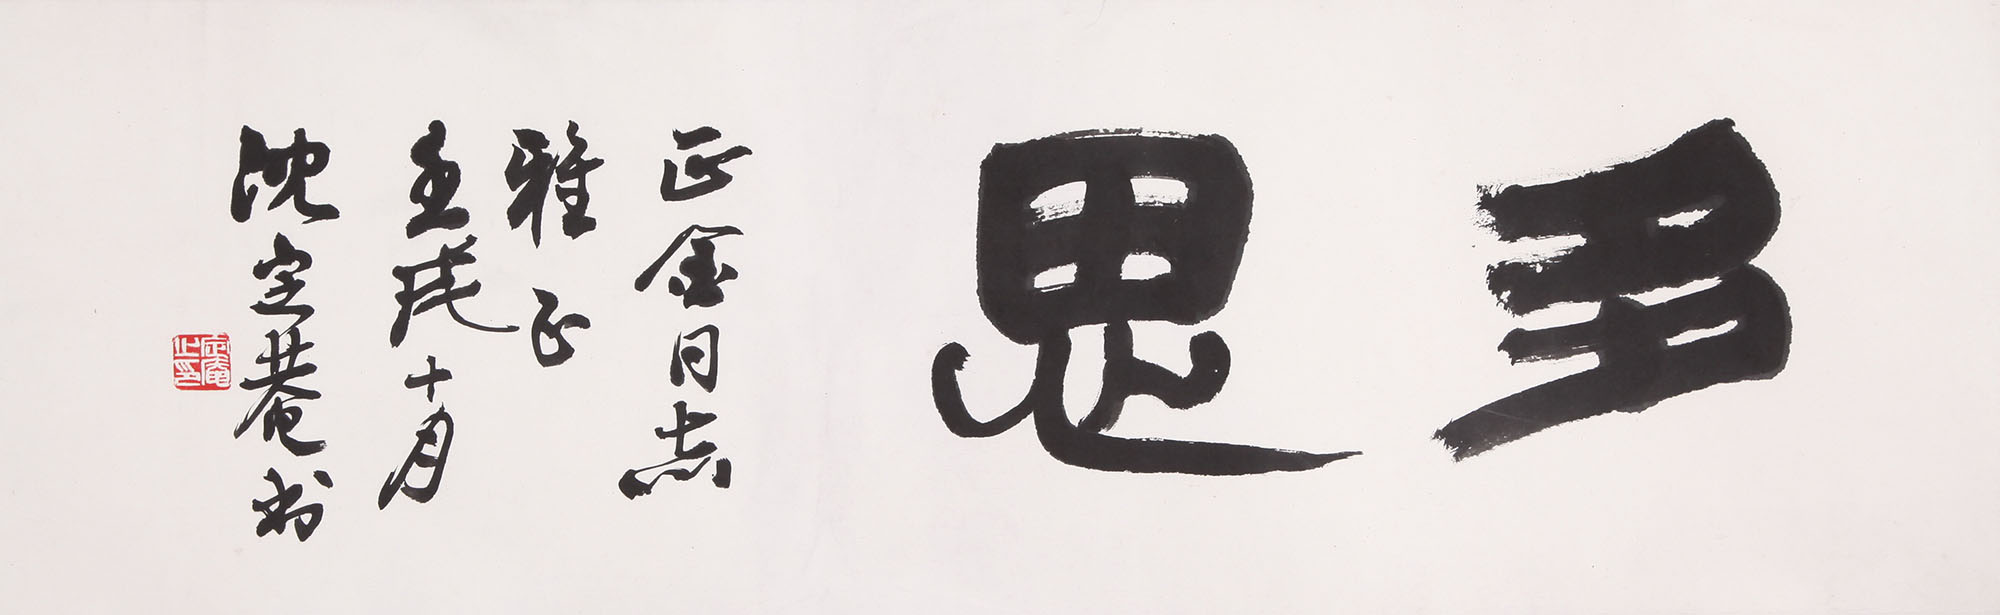 多思
正金同志
雅正
壬戌十月
沈定庵书
定庵之印